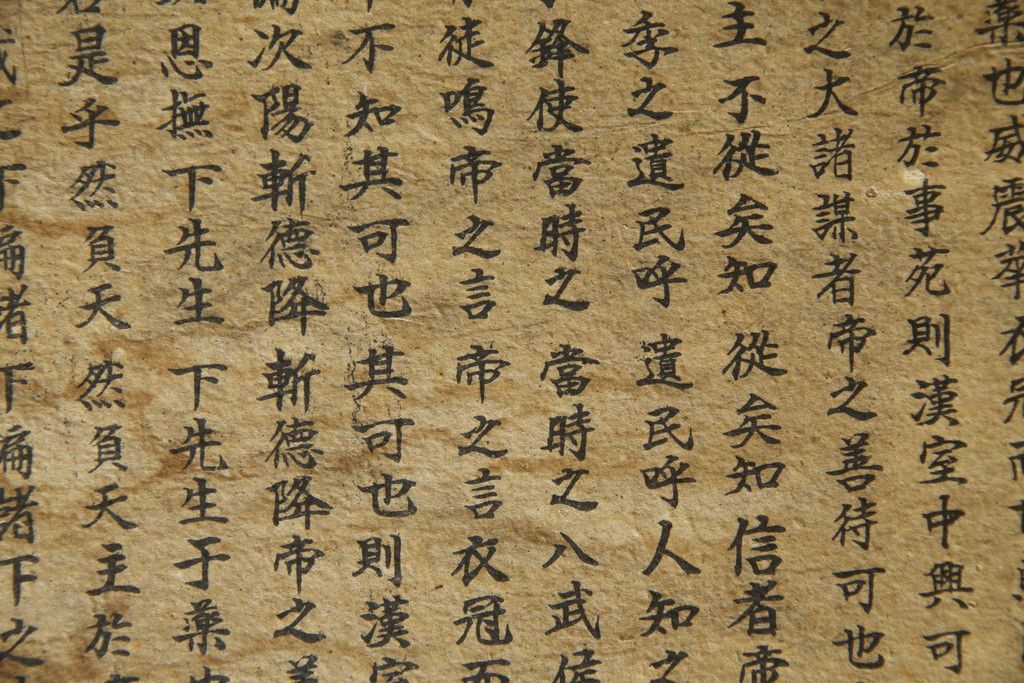 藥也威震華衣冠而
於帝於事苑則漢室中興可
之大諸謀者帝之善待可也
主不從矣知從矣知信者帝
季之遺民呼遺民呼人知之
鋒使當時之當時之八武侯
徒鳴帝之言帝之言衣冠而
不知其可也其可也則漢室
次陽斬德降斬德降帝之善
恩撫下先生下先生于藥也
是乎然負天然負天主於
之下徧諸下徧諸下之